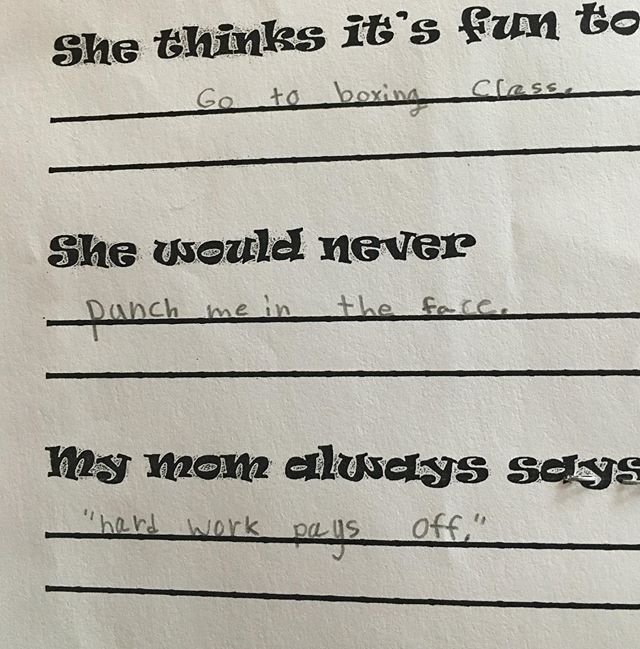 She thinks it's fun to
Go to boxing Class.
She would never
punch me in the face.
My mom always says
"hard work pays off."